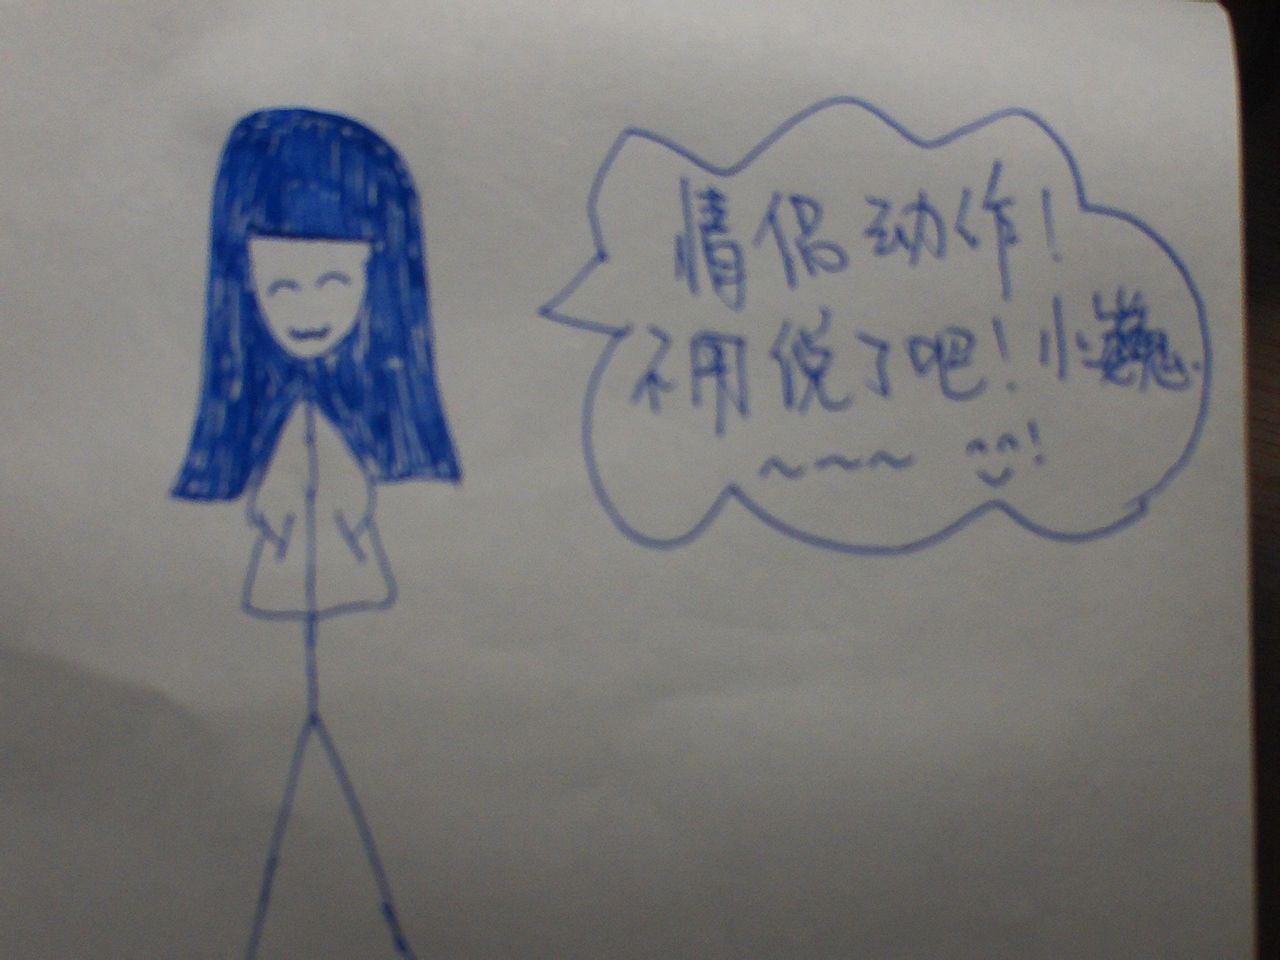 情侣动作!
不用说了吧!小巍
~~~ ^^!